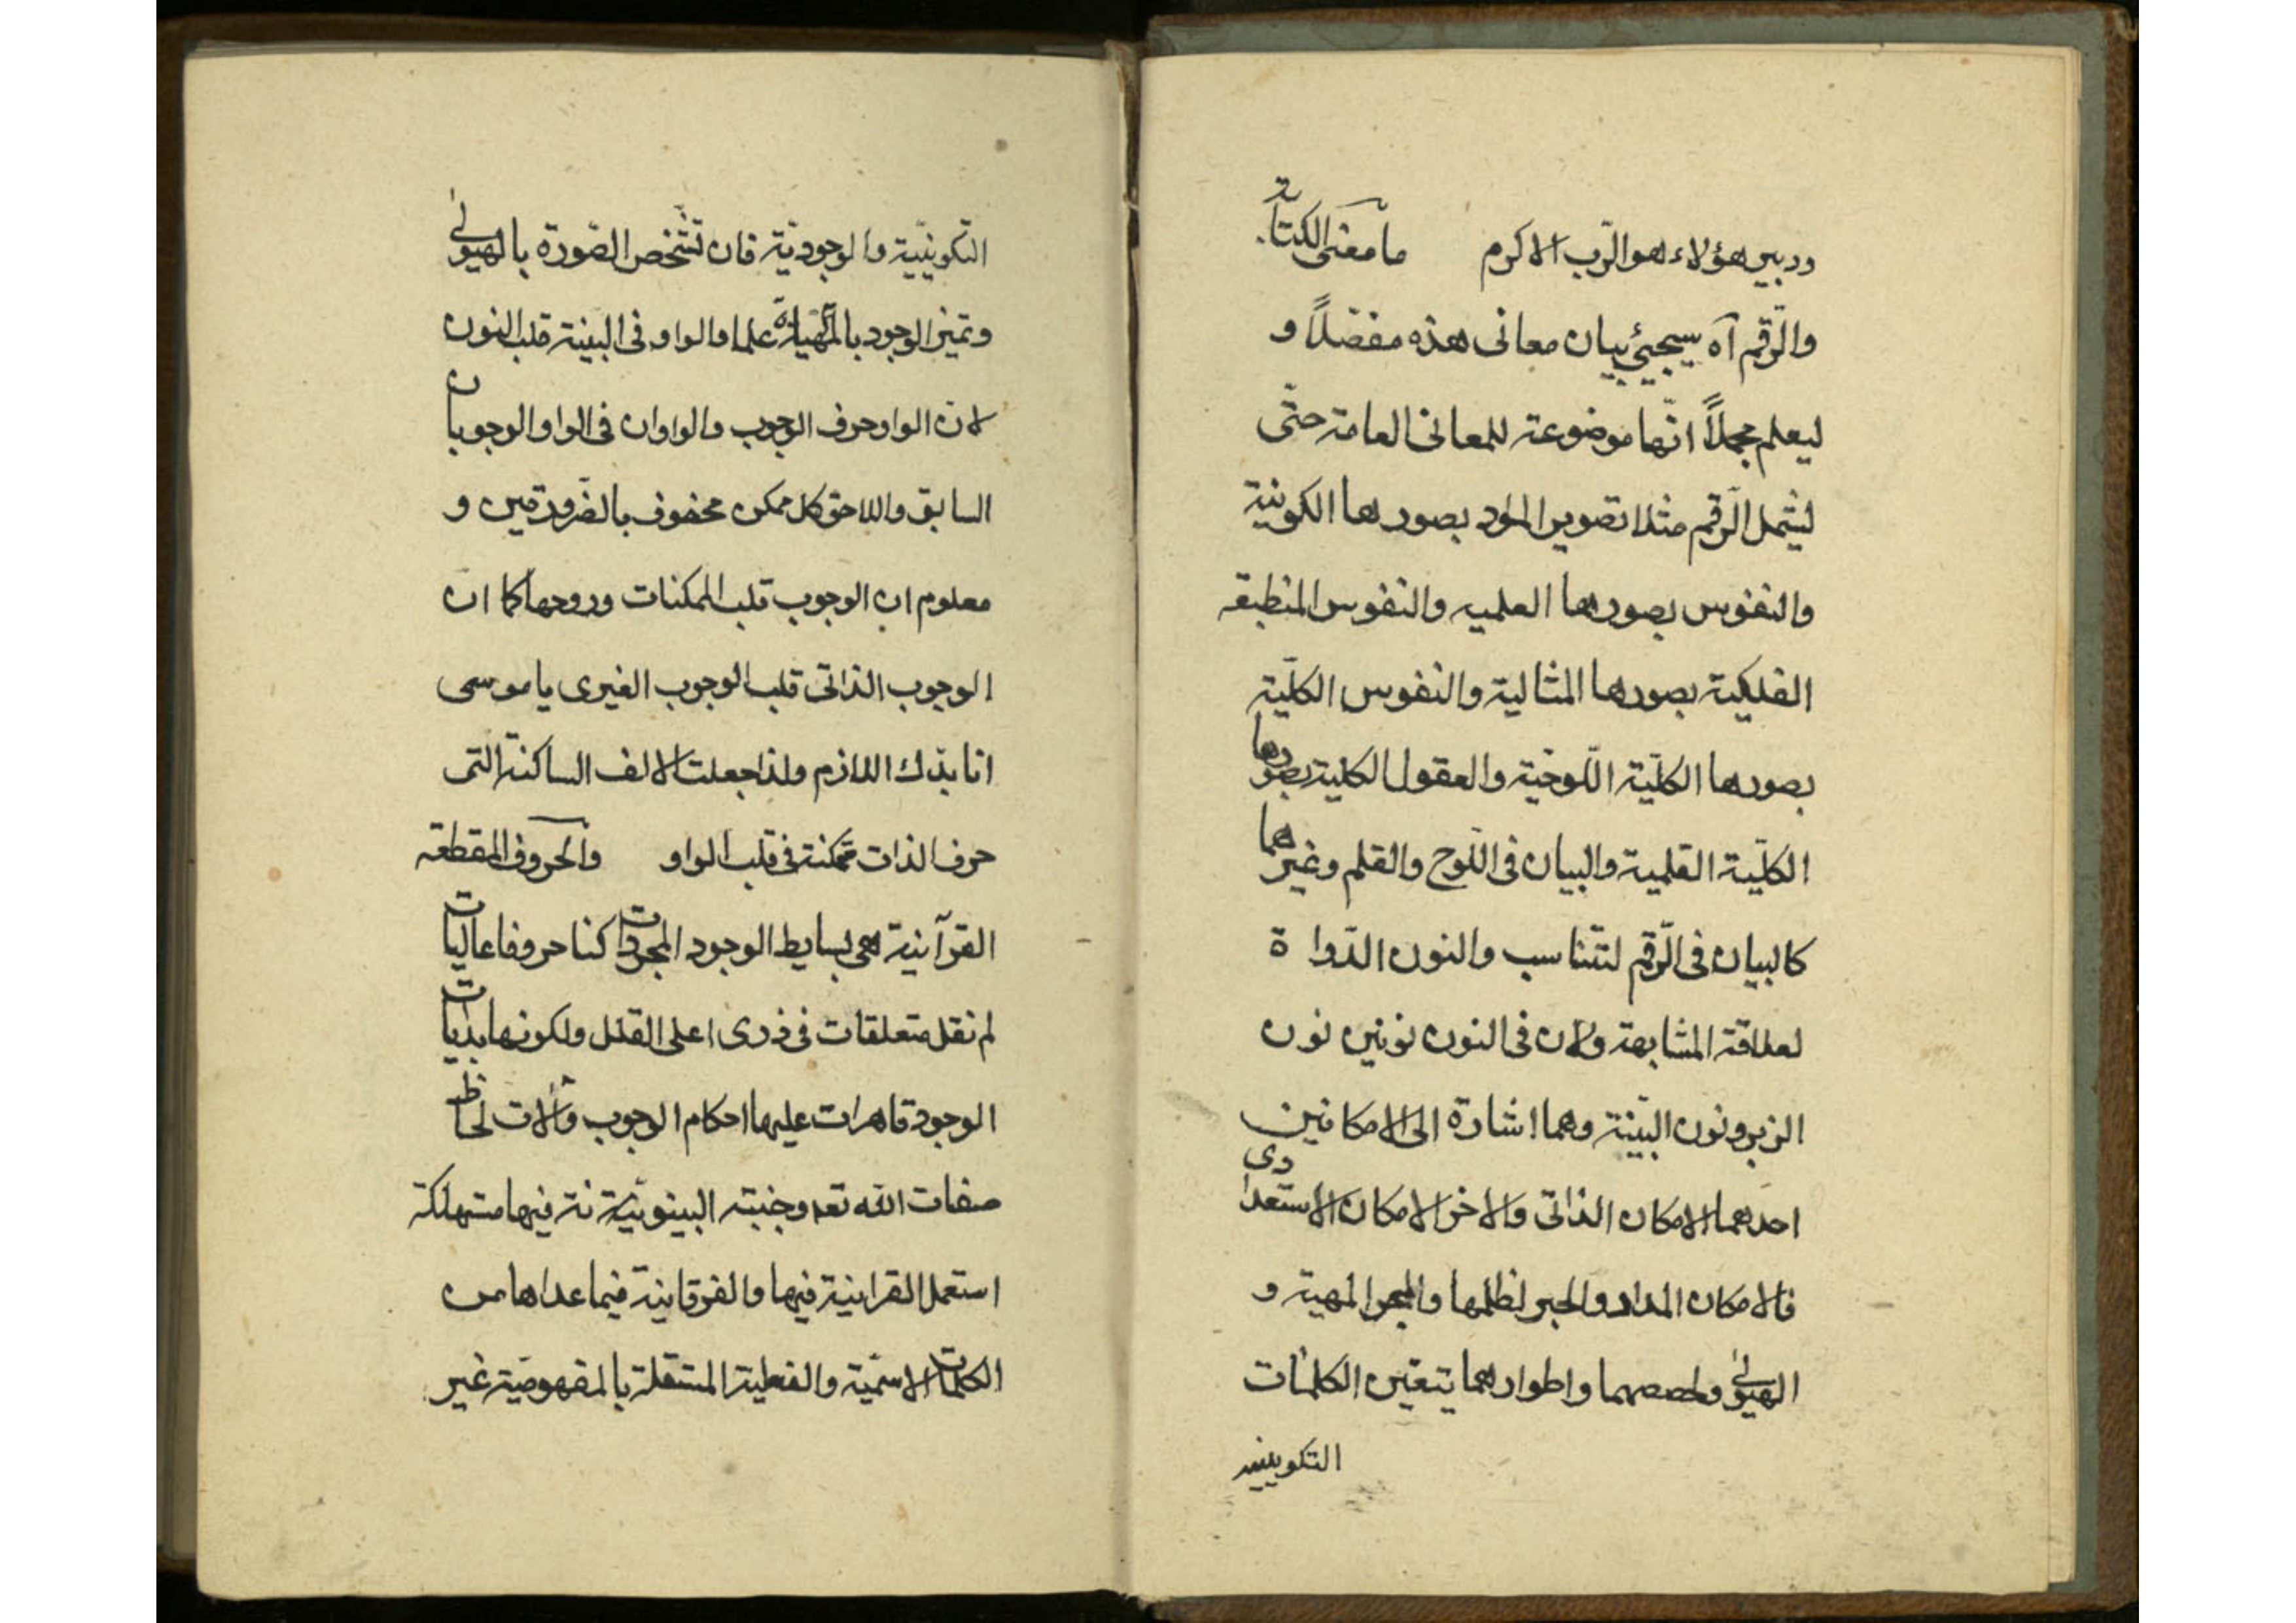 وربین هؤلاء هو الرّب الاکرم ما معنی الکتابة
والرّقم آه سیجیئ بیان معانی هذه مفصّلاً و
لیعلم مجملاً انّها موضوعة للمعانی العامة حتّی
لیشمل الرّقم مثلا تصویر المواد بصورها الکونیة
والنفوس بصورها العلمیه والنفوس المنطبقه
الفلکیة بصورها المثالیة والنفوس الکلّیة
بصورها الکلّیة اللّوحیة والعقول الکلیة بصورها
الکلّیة القلمیة والبیان فی اللّوح والقلم وغیرهما
کالبیان فی الرّقم لتتناسب والنون الدّواة
لعلاقة المشابهة ولان فی النون نونین نون
الزبر ونون البیّنة وهما اشارة الی الامکانین
احدهما الامکان الذاتی والاخر الامکان الاستعدادی
فالامکان المداد والحبر لظلمها والمحبر المهیة و
الهیولی وحصصهما واطوارهما یتعیّن الکلمات
التکوینیه
التکوینیّة والوجودیّة فان تشّخص الصّورة بالهیولی
وتمیز الوجود بالمهیة علما والواو فی البینة قلب النون
لانّ الواو حرف الوجوب والواوان فی الواو الوجوبان
السابق واللاحق کل ممکن محفوف بالضّرورتین و
معلوم ان الوجوب قلب الممکنات وروحها کما ان
الوجوب الذاتی قلب الوجوب الغیری یا موسی
انا بدّك اللازم ولذا جعلت الالف الساکنة التی
حرف الذات متمکنة فی قلب الواو والحروف المقطعه
القرآنیة هی بسایط الوجود المجردات کنا حروفا عالیات
لم نقل متعلقات فی ذری اعلی القلل ولکونها بدایات
الوجود قاهرات علیها احکام الوجوب وآلات لحاظ
صفات الله تعه وجنبته البینونیّة نة فیها مستهلکة
استعمل القرانیة فیها والفرقانیة فیما عداها من
الکلمات الاسمّیة والفعلیة المستقلة بالمفهومیّة غیر